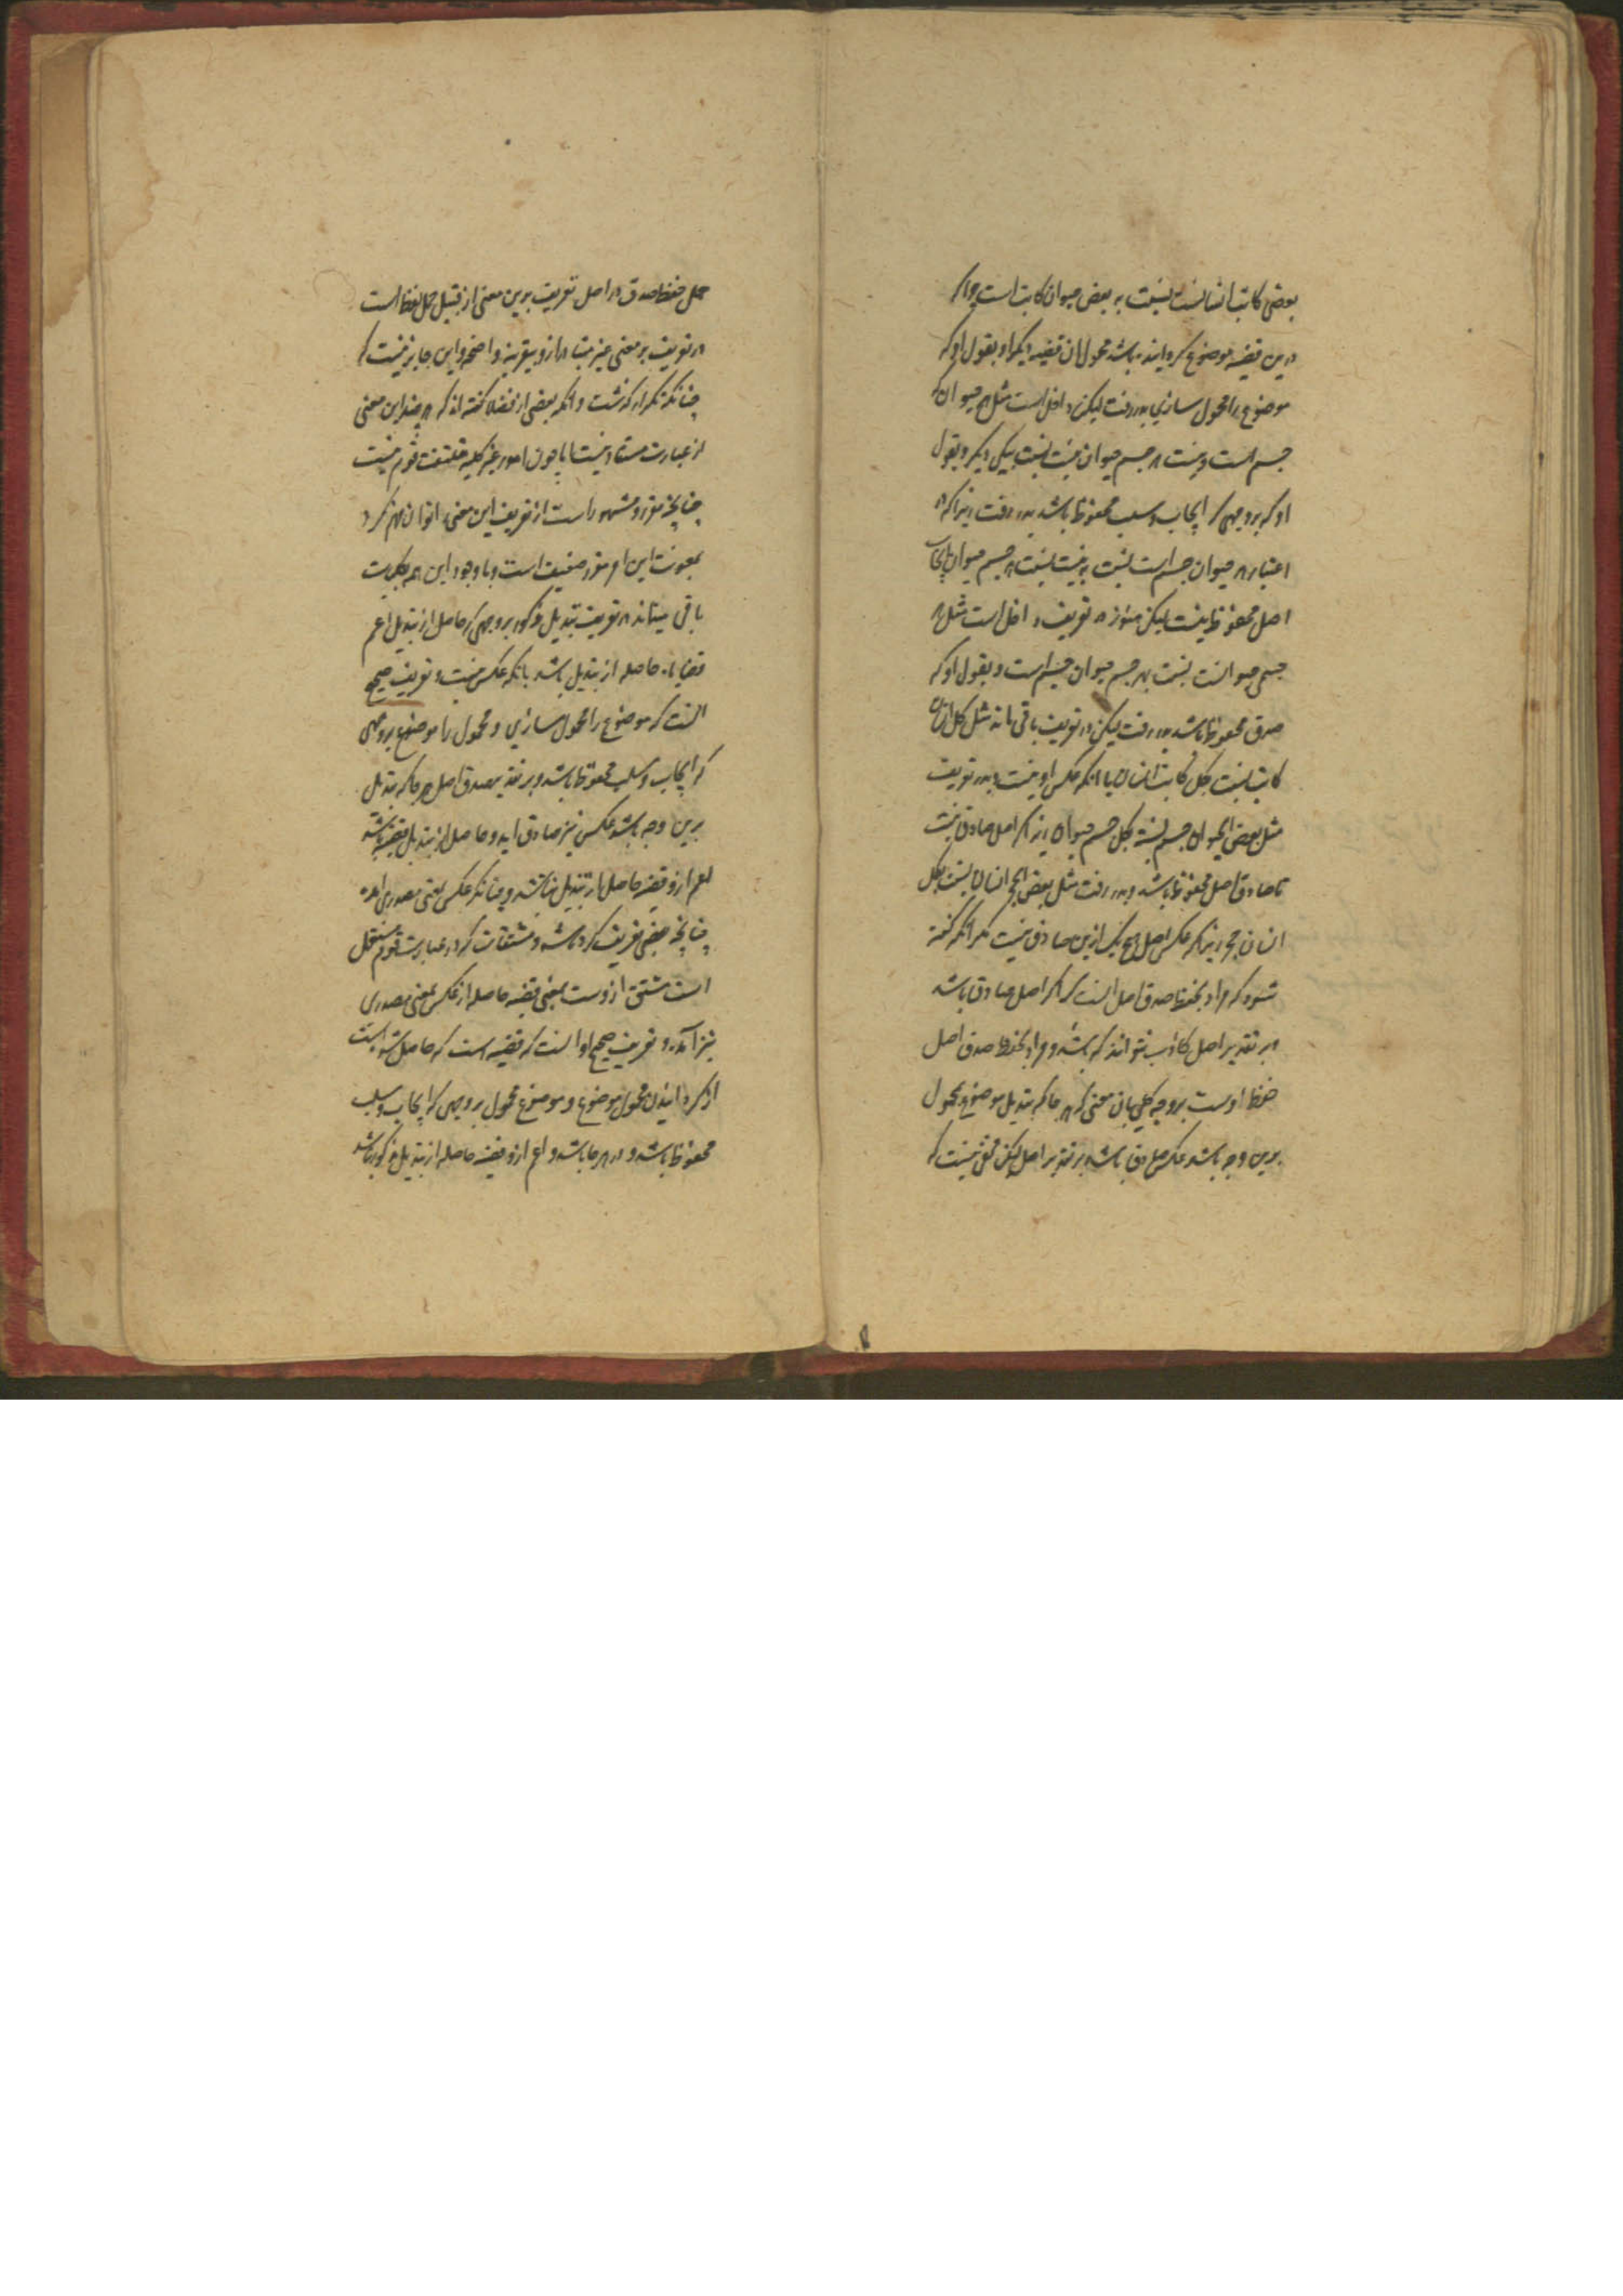 بعضی کاتب انسانست نسبت به بعض حیوان کاتب است چرا که
درین قضیه موضوع گردانیده باشد محمول آن قضیه دیگر او بقول او که
موضوع را محمول سازی بدر رفت لیکن داخل است مثل هر حیوان
جسم است و نیست هر جسم حیوان نیست نسبت بیکی دیگر و بقول
او که بر وجهی که ایجاب و سلب محفوظ باشد بدر رفت زیرا که در
اعتبار هر حیوان جسم است نسبت به نیست هر جسم حیوان ایجاب
اصل محفوظ نیست لیکن هنوز در تعریف داخل است مثل هر
جسمی حیوانست نسبت بهر جسم حیوان جسم است و بقول او که
صدق محفوظ باشد بدر رفت لیکن در تعریف باقی ماند مثل کل انسان
کاتب نسبت بکل کاتب انسان با آنکه عکس او نیست و بدر تعریف
مثل بعض الحیوان جسم نسبت بکل جسم حیوان زیرا که اصل صادق نیست
تا صادق اصل محفوظ باشد و بدر رفت مثل بعض الحجر انسان نسبت بکل
انسان حجر زیرا که عکس اصل هیچ یک ازین صادق نیست مگر آنکه گفته
شود که مراد بحفظ صدق اصل آنست که اگر اصل صادق باشد
بر تقدیر اصل کاذب نتواند که باشد و مراد بحفظ صدق اصل
حفظ اوست بر وجه کلی بان معنی که هر جا که تبدیل موضوع بمحمول
برین وجه باشد عکس صادق باشد بر تقدیر اصل لیکن مخفی نیست که
حمل حفظ صدق در اصل تعریف برین معنی از قبیل حمل لفظ است
در تعریف بر معنی غیر متبادر ازو بیقرینه واضحه و این جایز نیست
چنانکه مکرر گذشت و آنکه بعضی از فضلا گفته اند که هر چند این معنی
از عبارت مستفاد نیست اما چون امور غیر کلیه ملتفت قوم نیست
چنانچه مقرر و مشهور است از تعریف این معنی را توان فهم کرد
بمعونت این امر مقرر ضعیف است و با وجود این همه کلیت
باقی میماند در تعریف تبدیل مذکور بر وجهی که حاصل از تبدیل اعم
قضایاء حاصله از تبدیل باشد با آنکه عکس نیست و تعریف صحیح
آنست که موضوع را محمول سازی و محمول را موضوع بر وجهی
که ایجاب و سلب محفوظ باشد و بر تقدیر صدق اصل هر جا که تبدیل
برین وجه باشد عکس نیز صادق آید و حاصل از تبدیل قضیه باشد
اعم ازو قضیه حاصل از تبدیل نباشد و چنانکه عکس بمعنی مصدری آمده
چنانچه بعضی تعریف کرده باشد و مشتقات که در عبارت قوم مستعمل
است مشتق ازوست بمعنی قضیه حاصله از عکس بمعنی مصدری
نیز آمده و تعریف صحیح او آنست که قضیه است که حاصل شده است
از گردانیدن محمول موضوع و موضوع محمول بر وجهی که ایجاب و سلب
محفوظ باشد و در هر جا باشد و اعم ازو قضیه حاصله از تبدیل مذکور نباشد